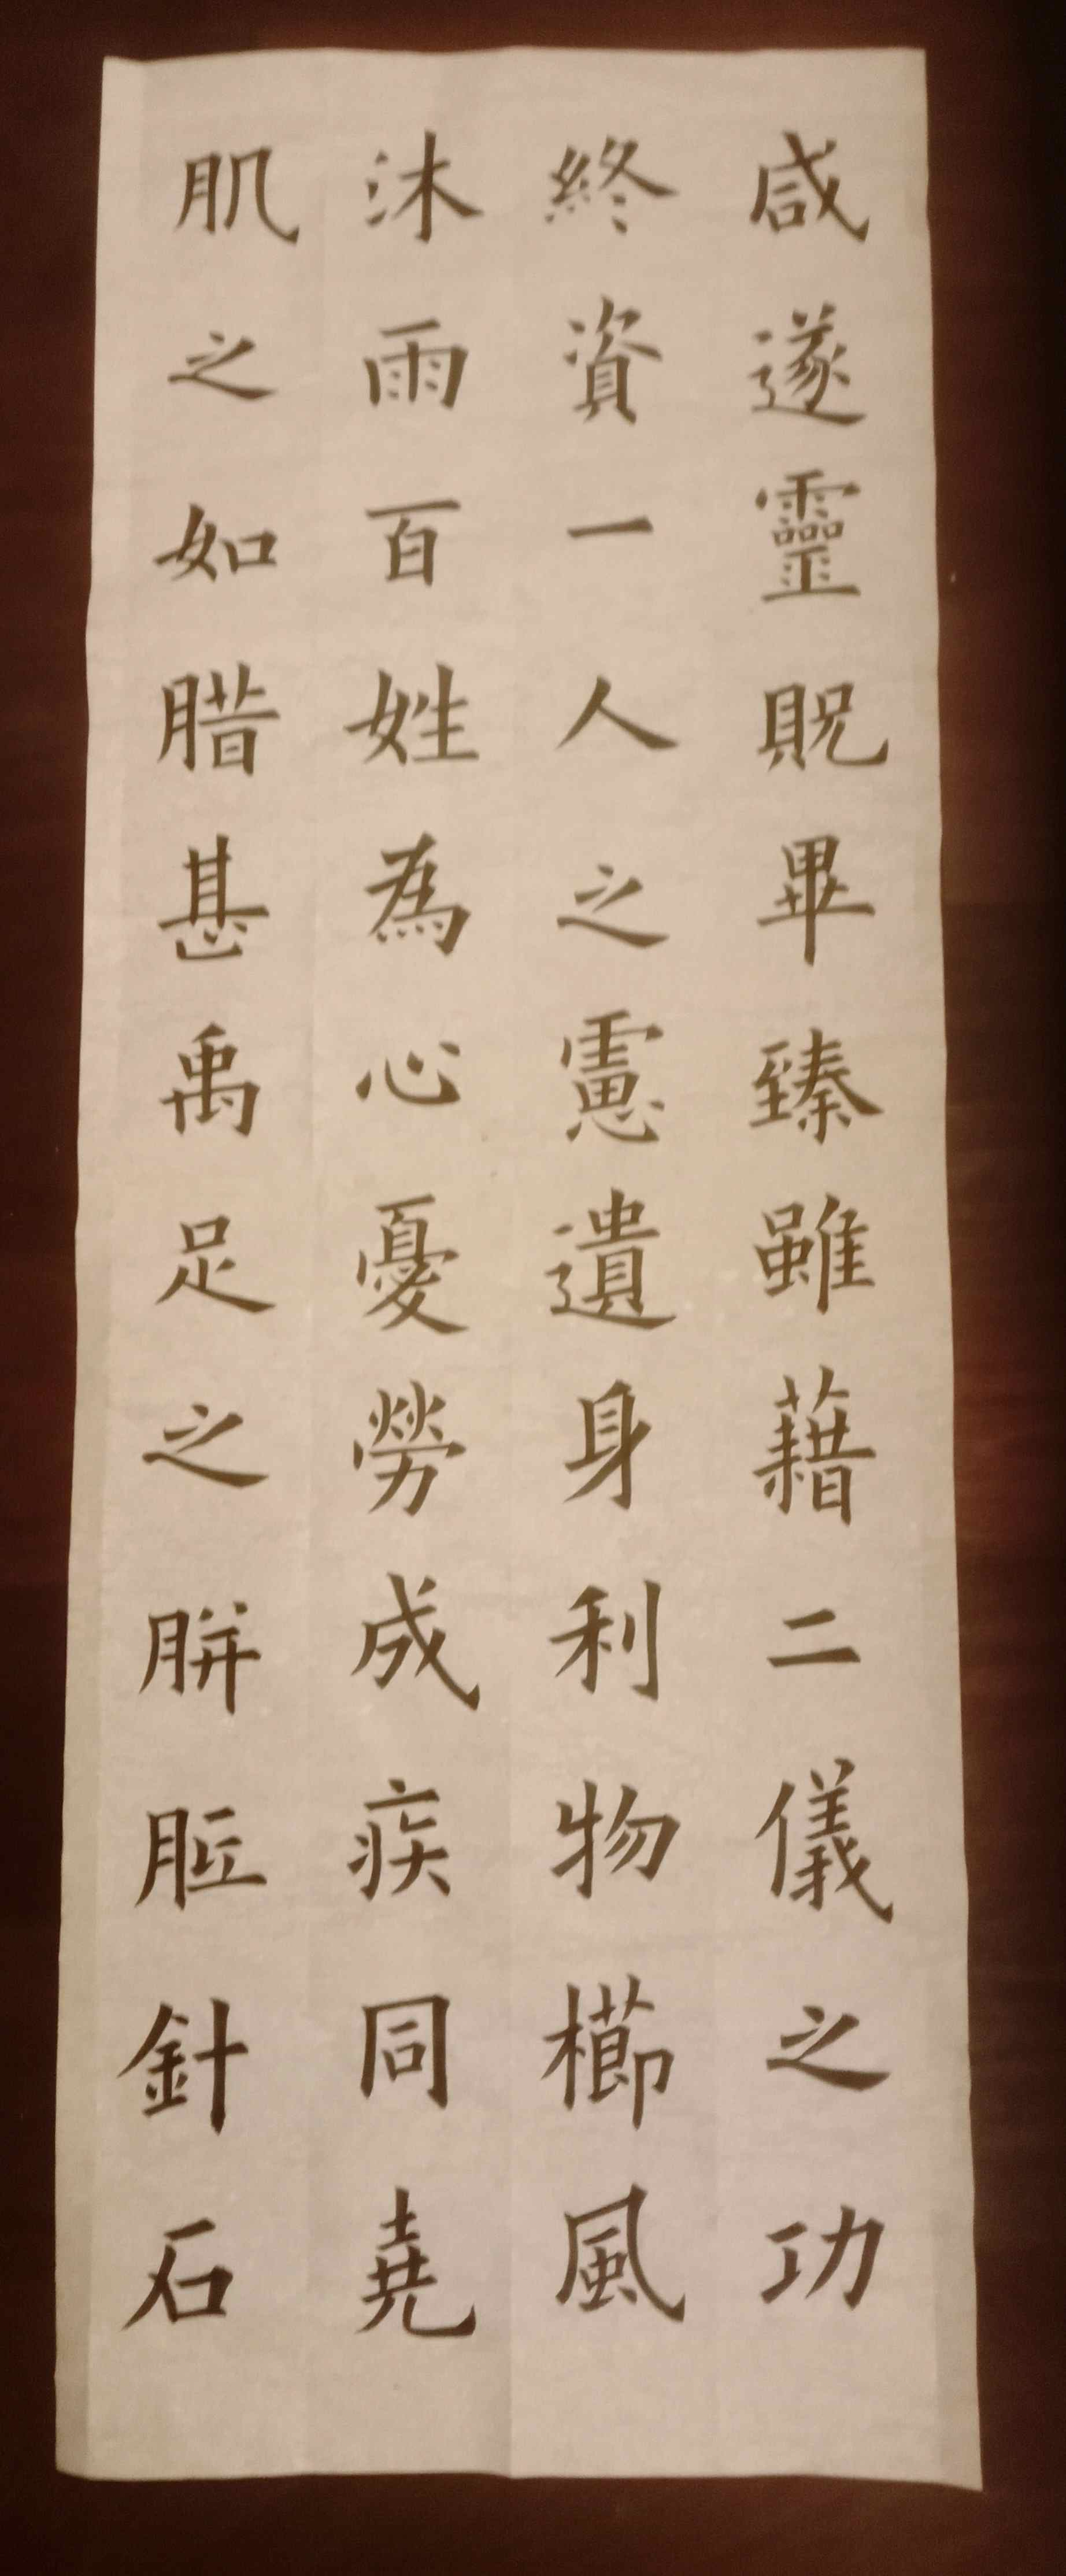 咸遂靈貺畢臻雖藉二儀之功
終資一人之慮遺身利物櫛風
沐雨百姓為心憂勞成疾同堯
肌之如腊甚禹足之胼胝針石